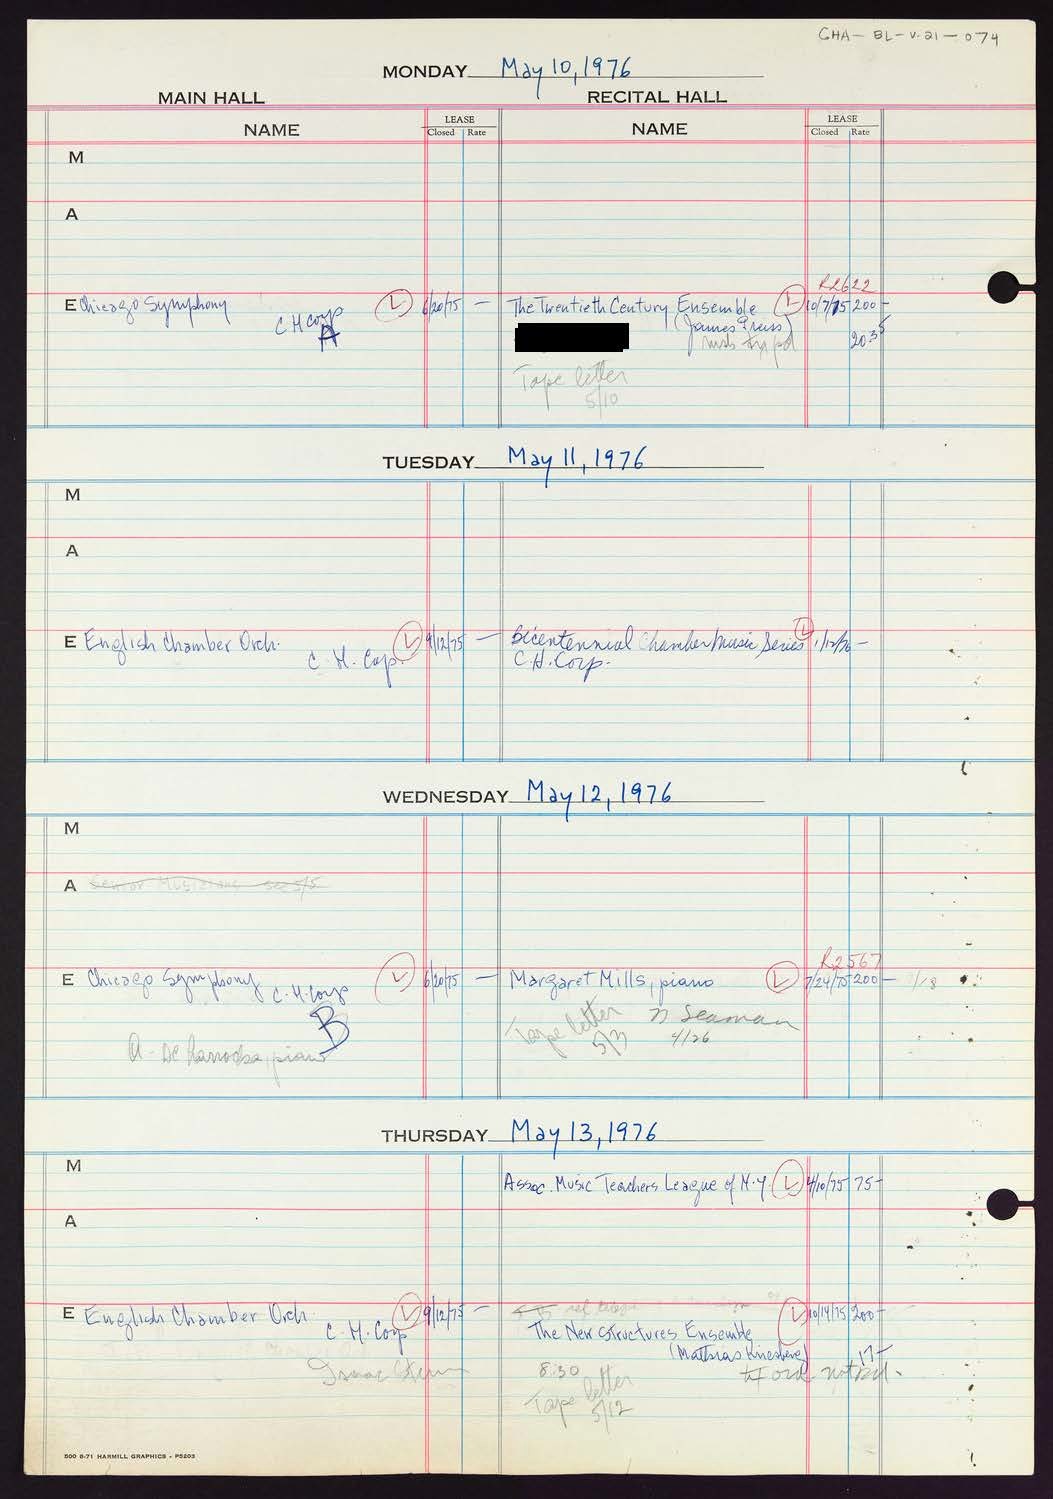 CHA-BL-V-21-074
MONDAY May 10, 1976
MAIN HALL RECITAL HALL
NAME LEASE Closed Rate NAME LEASE Closed Rate
M
A
R2622
E Chicago Symphony L 6/20/75 — The Twentieth Century Ensemble L 10/7/75 200-
C H Corp (James Preiss)
A 20 35
Tape letter
5/10
TUESDAY May 11, 1976
M
A
E English Chamber Orch. L 9/12/75 — Bicentennial Chamber Music Series L 1/12/76 —
C. H. Corp. C.H. Corp.
WEDNESDAY May 12, 1976
M
A Senior Musicians see 5/5
R2567
E Chicago Symphony L 6/20/75 — Margaret Mills, piano L 7/24/75 200-
C. H. Corp
B Tape letter N Seaman
5/3 4/26
A. De Larrocha, piano
THURSDAY May 13, 1976
M
Assoc. Music Teachers League of N.Y. L 4/10/75 75-
A
E English Chamber Orch. L 9/12/75 — L 10/14/75 200-
C. H. Corp The New Structures Ensemble
(Mathias Kriesberg) 17-
Isaac Stern 8:30
Tape letter
5/12
500 8-71 HARMILL GRAPHICS - P5203